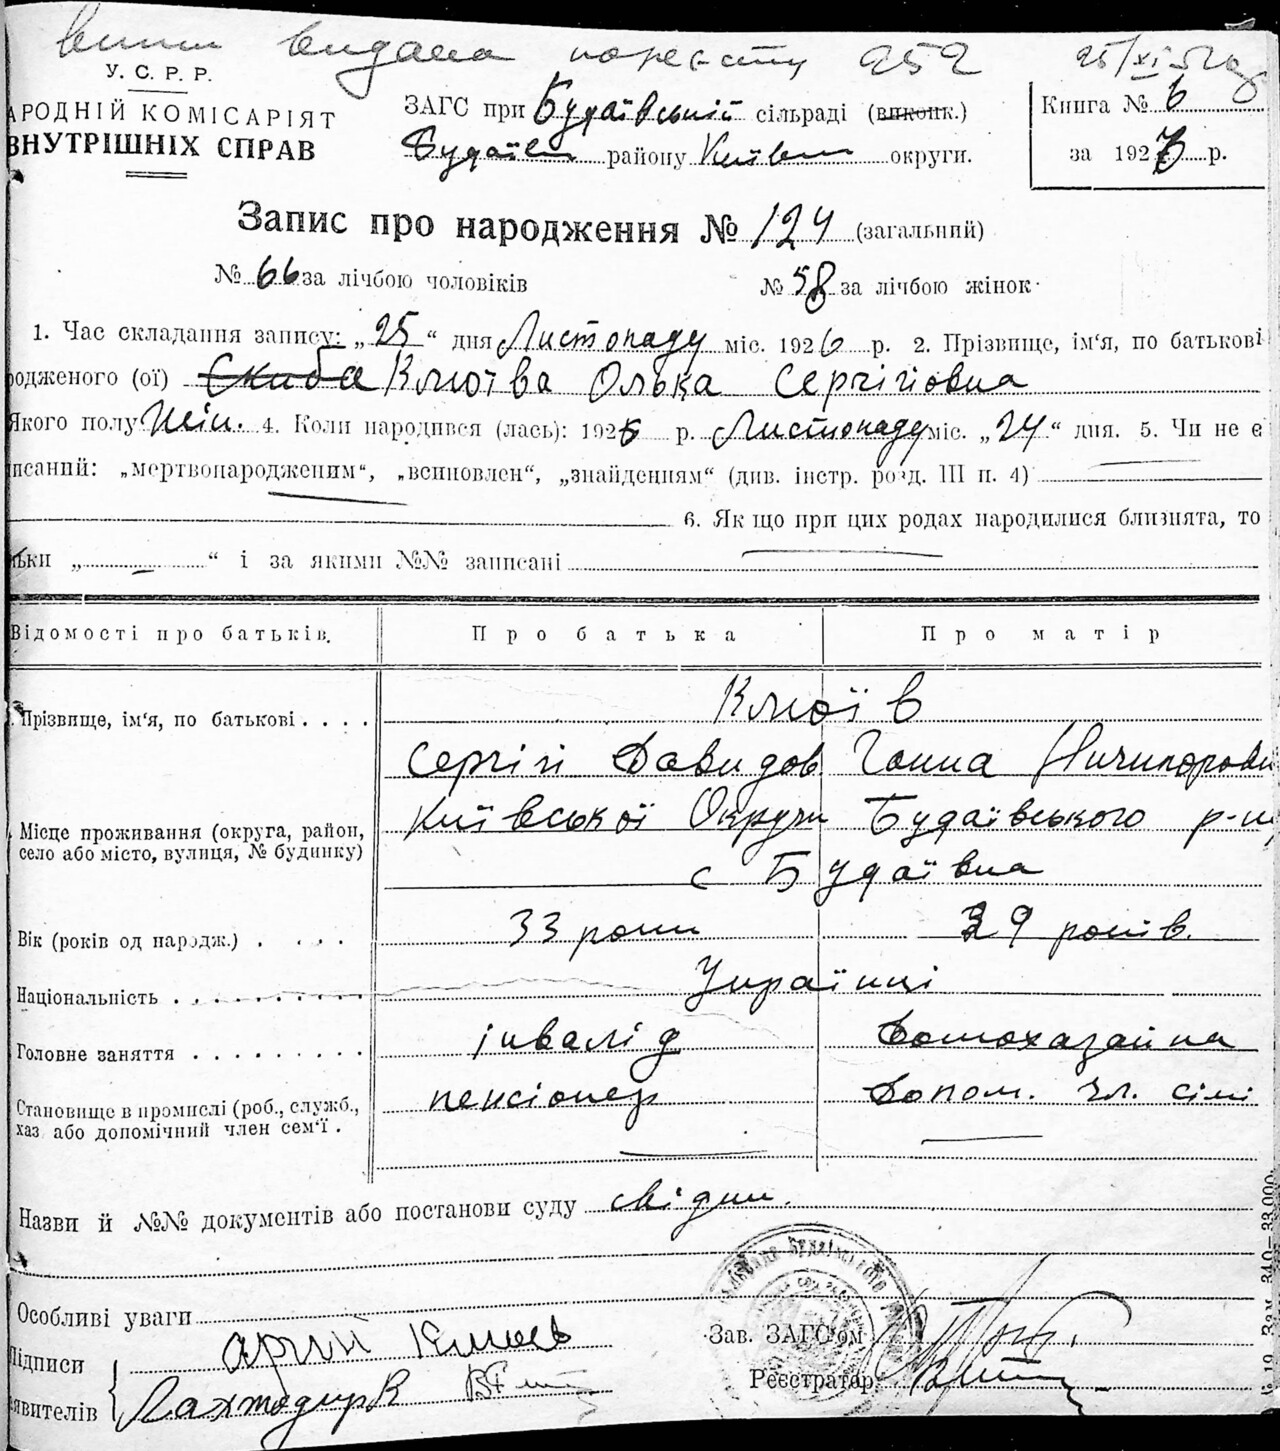 видана 252 25/XI 52
У. С. Р. Р.
АРОДНІЙ КОМІСАРІЯТ
ВНУТРІШНІХ СПРАВ
ЗАГС при Будаївській сільраді (виконк.)
району округи.
Книга № 6
за 1926 р.
Запис про народження № 124 (загальний)
№ 66 за лічбою чоловіків № 58 за лічбою жінок
1. Час складання запису: „25“ дня Листопаду міс. 1926 р. 2. Прізвище, ім'я, по батькові
родженого (ої) Скиба Клюїва Олька Сергіївна
Якого полу жін. 4. Коли народився (лась): 1926 р. Листопаду міс. „24“ дня. 5. Чи не є
писаний: „мертвонародженим“, „всиновлен“, „знайденням“ (див. інстр. розд. III п. 4)
6. Якщо при цих родах народилися близнята, то
льки „ “ і за якими №№ записані
Відомості про батьків. Про батька Про матір
Прізвище, ім'я, по батькові . . . . Клюїв
Сергій Давидов Ганна Ничипорови
Місце проживання (округа, район,
село або місто, вулиця, № будинку)
Київської Округи Будаївського р-ну
с Будаївка
Вік (років од народж.) . . . . 33 роки 29 років.
Національність . . . . . . . . . . Українці
Головне заняття . . . . . . . . . інвалід Домохазайка
Становище в промислі (роб., служб.,
хаз. або допомічний член сем'ї .
пенсіонер Допом. чл. сімі
Назви й №№ документів або постанови суду свідки.
Особливі уваги
Підписи
явителів
Клюєв
Зав. ЗАГС'ом
Реєстратор
Зам. 340—33.000.